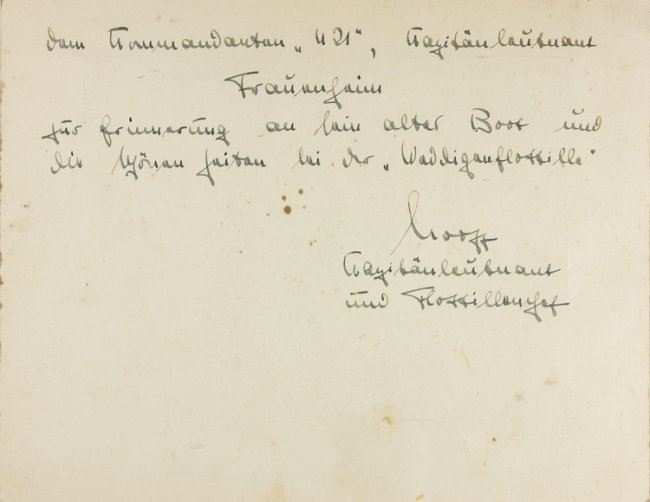 dem Kommandanten „U 21“, Kapitänleutnant
Frauenheim
zur Erinnerung an sein altes Boot und
die schönen Zeiten bei der „Weddigenflottille“
Kapitänleutnant
und Flottillenchef